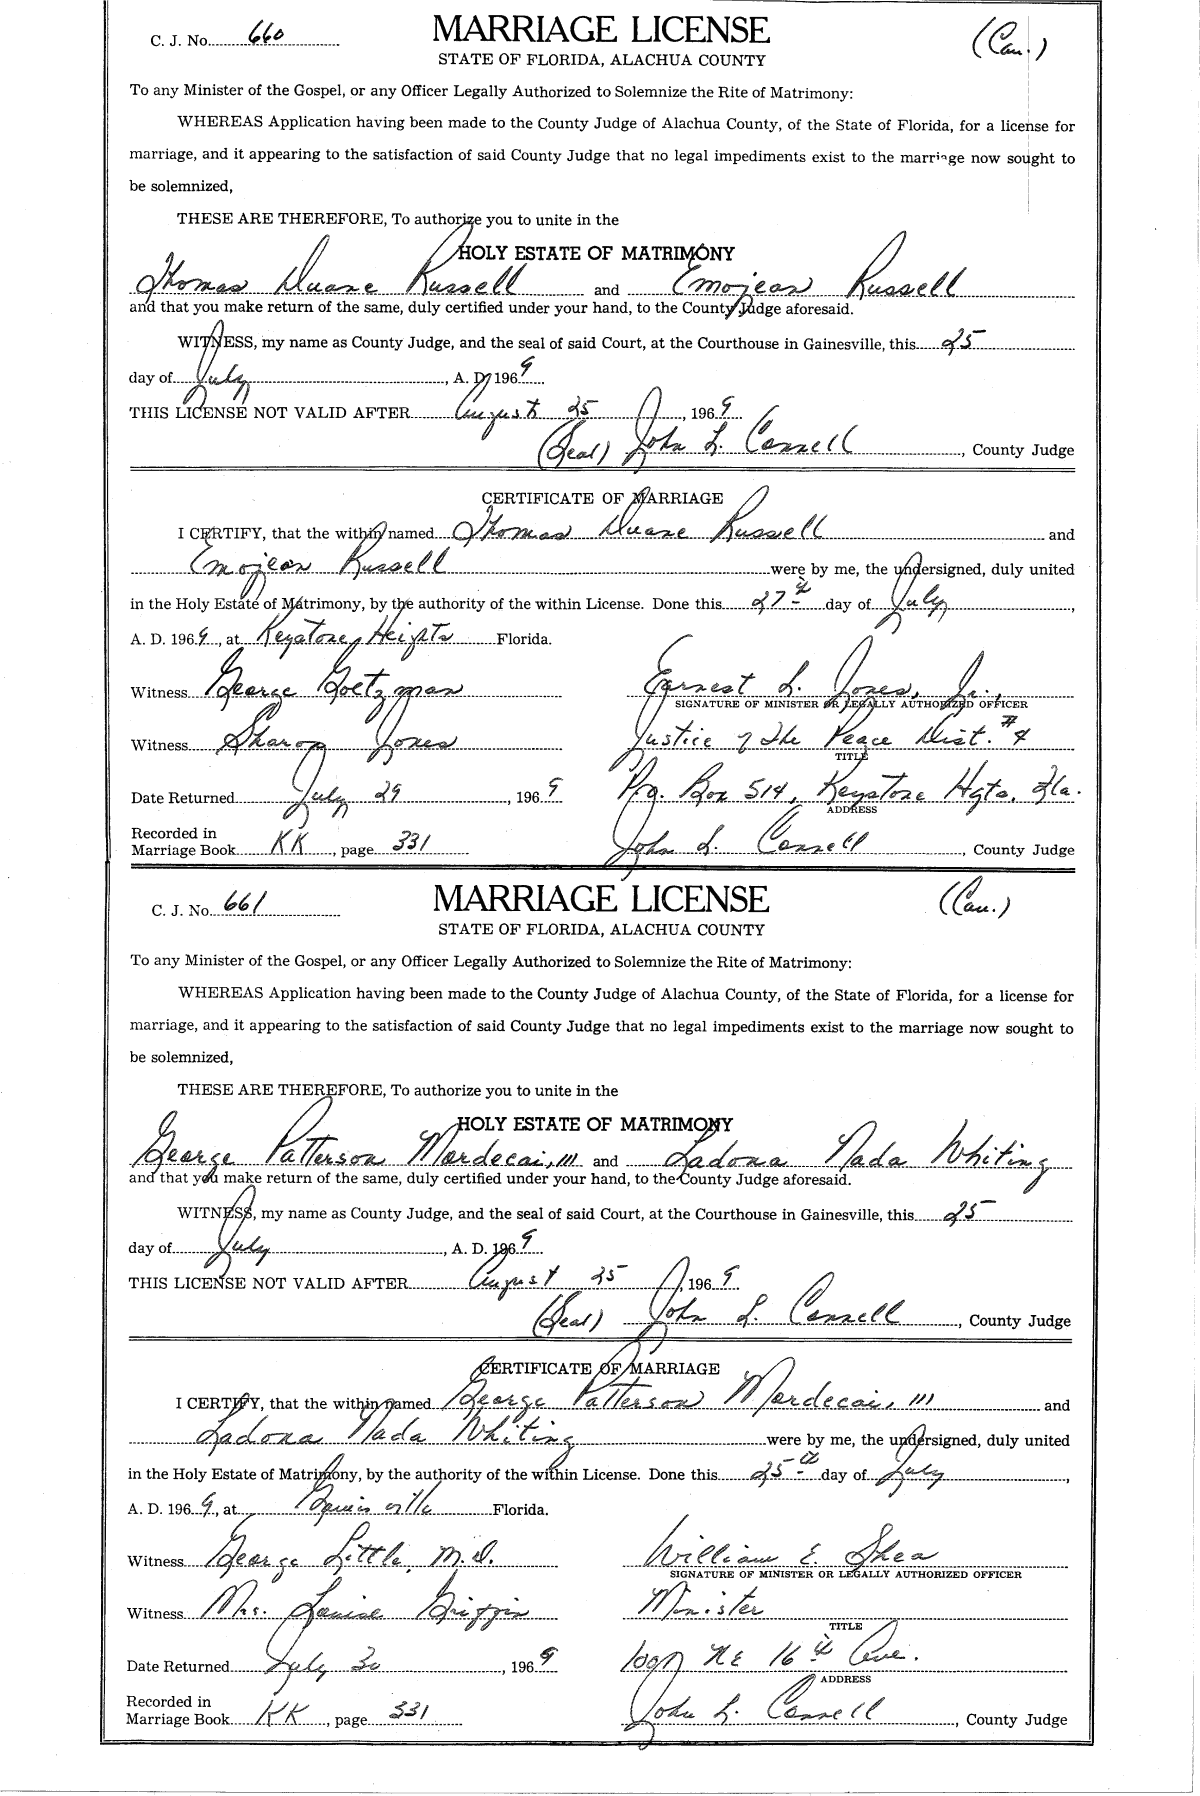 C. J. No. 660 MARRIAGE LICENSE (Cau.)
STATE OF FLORIDA, ALACHUA COUNTY
To any Minister of the Gospel, or any Officer Legally Authorized to Solemnize the Rite of Matrimony:
WHEREAS Application having been made to the County Judge of Alachua County, of the State of Florida, for a license for
marriage, and it appearing to the satisfaction of said County Judge that no legal impediments exist to the marriage now sought to
be solemnized,
THESE ARE THEREFORE, To authorize you to unite in the
HOLY ESTATE OF MATRIMONY
Thomas Duane Russell and Emojean Russell
and that you make return of the same, duly certified under your hand, to the County Judge aforesaid.
WITNESS, my name as County Judge, and the seal of said Court, at the Courthouse in Gainesville, this 25
day of July, A. D. 1969
THIS LICENSE NOT VALID AFTER August 25, 1969
(Seal) John L. Connell, County Judge
CERTIFICATE OF MARRIAGE
I CERTIFY, that the within named Thomas Duane Russell and
Emojean Russell were by me, the undersigned, duly united
in the Holy Estate of Matrimony, by the authority of the within License. Done this 27th day of July,
A. D. 1969, at Keystone Heights Florida.
Witness George Goetzman Earnest L. Jones, Jr.,
SIGNATURE OF MINISTER OR LEGALLY AUTHORIZED OFFICER
Witness Sharon Jones Justice of The Peace Dist. #4
TITLE
Date Returned July 29, 1969 P.o. Box 514, Keystone Hgts. Fla.
ADDRESS
Recorded in
Marriage Book KK, page 331 John L. Connell, County Judge
C. J. No. 661 MARRIAGE LICENSE (Cau.)
STATE OF FLORIDA, ALACHUA COUNTY
To any Minister of the Gospel, or any Officer Legally Authorized to Solemnize the Rite of Matrimony:
WHEREAS Application having been made to the County Judge of Alachua County, of the State of Florida, for a license for
marriage, and it appearing to the satisfaction of said County Judge that no legal impediments exist to the marriage now sought to
be solemnized,
THESE ARE THEREFORE, To authorize you to unite in the
HOLY ESTATE OF MATRIMONY
George Patterson Mordecai, III and Ladona Nada Whiting
and that you make return of the same, duly certified under your hand, to the County Judge aforesaid.
WITNESS, my name as County Judge, and the seal of said Court, at the Courthouse in Gainesville, this 25
day of July, A. D. 1969
THIS LICENSE NOT VALID AFTER August 25, 1969
(Seal) John L. Connell, County Judge
CERTIFICATE OF MARRIAGE
I CERTIFY, that the within named George Patterson Mordecai, III and
Ladona Nada Whiting were by me, the undersigned, duly united
in the Holy Estate of Matrimony, by the authority of the within License. Done this 25th day of July,
A. D. 1969, at Gainesville Florida.
Witness George Little, M.D. William E. Shea
SIGNATURE OF MINISTER OR LEGALLY AUTHORIZED OFFICER
Witness Mrs. Louise Griffin Minister
TITLE
Date Returned July 30, 1969 1001 NE 16th Ave.
ADDRESS
Recorded in
Marriage Book KK, page 331 John L. Connell, County Judge